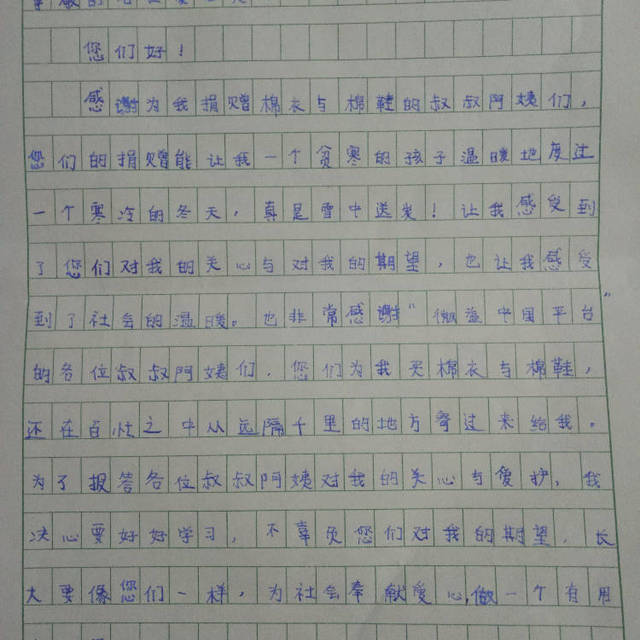 您们好!
感谢为我捐赠棉衣与棉鞋的叔叔阿姨们,
您们的捐赠能让我一个贫寒的孩子温暖地度过
一个寒冷的冬天,真是雪中送炭!让我感受到
了您们对我的关心与对我的期望,也让我感受
到了社会的温暖。也非常感谢“微益中国平台”
的各位叔叔阿姨们,您们为我买棉衣与棉鞋,
还在百忙之中从远隔千里的地方寄过来给我。
为了报答各位叔叔阿姨对我的关心与爱护,我
决心要好好学习,不辜负您们对我的期望,长
大要像您们一样,为社会奉献爱心,做一个有用